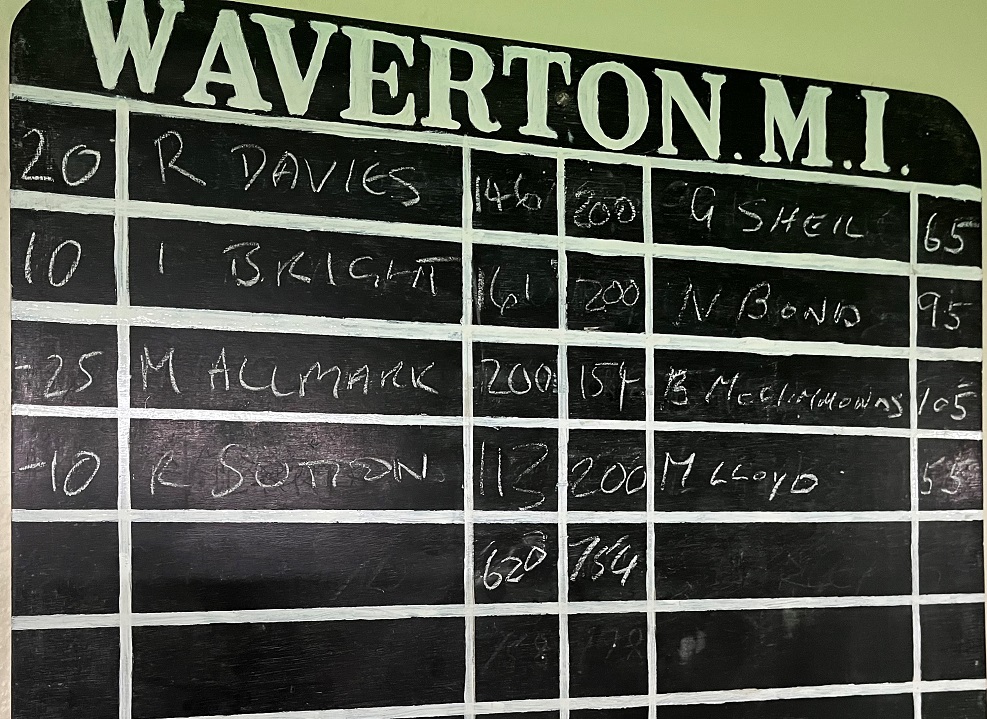 WAVERTON. M.I.
20 R DAVIES 146 200 G SHEIL 65
10 I BRIGHT 161 200 N BOND 95
-25 M ALLMARK 200 154 B McClimmonds 105
-10 K SUTTON 113 200 M LLOYD 55
620 754